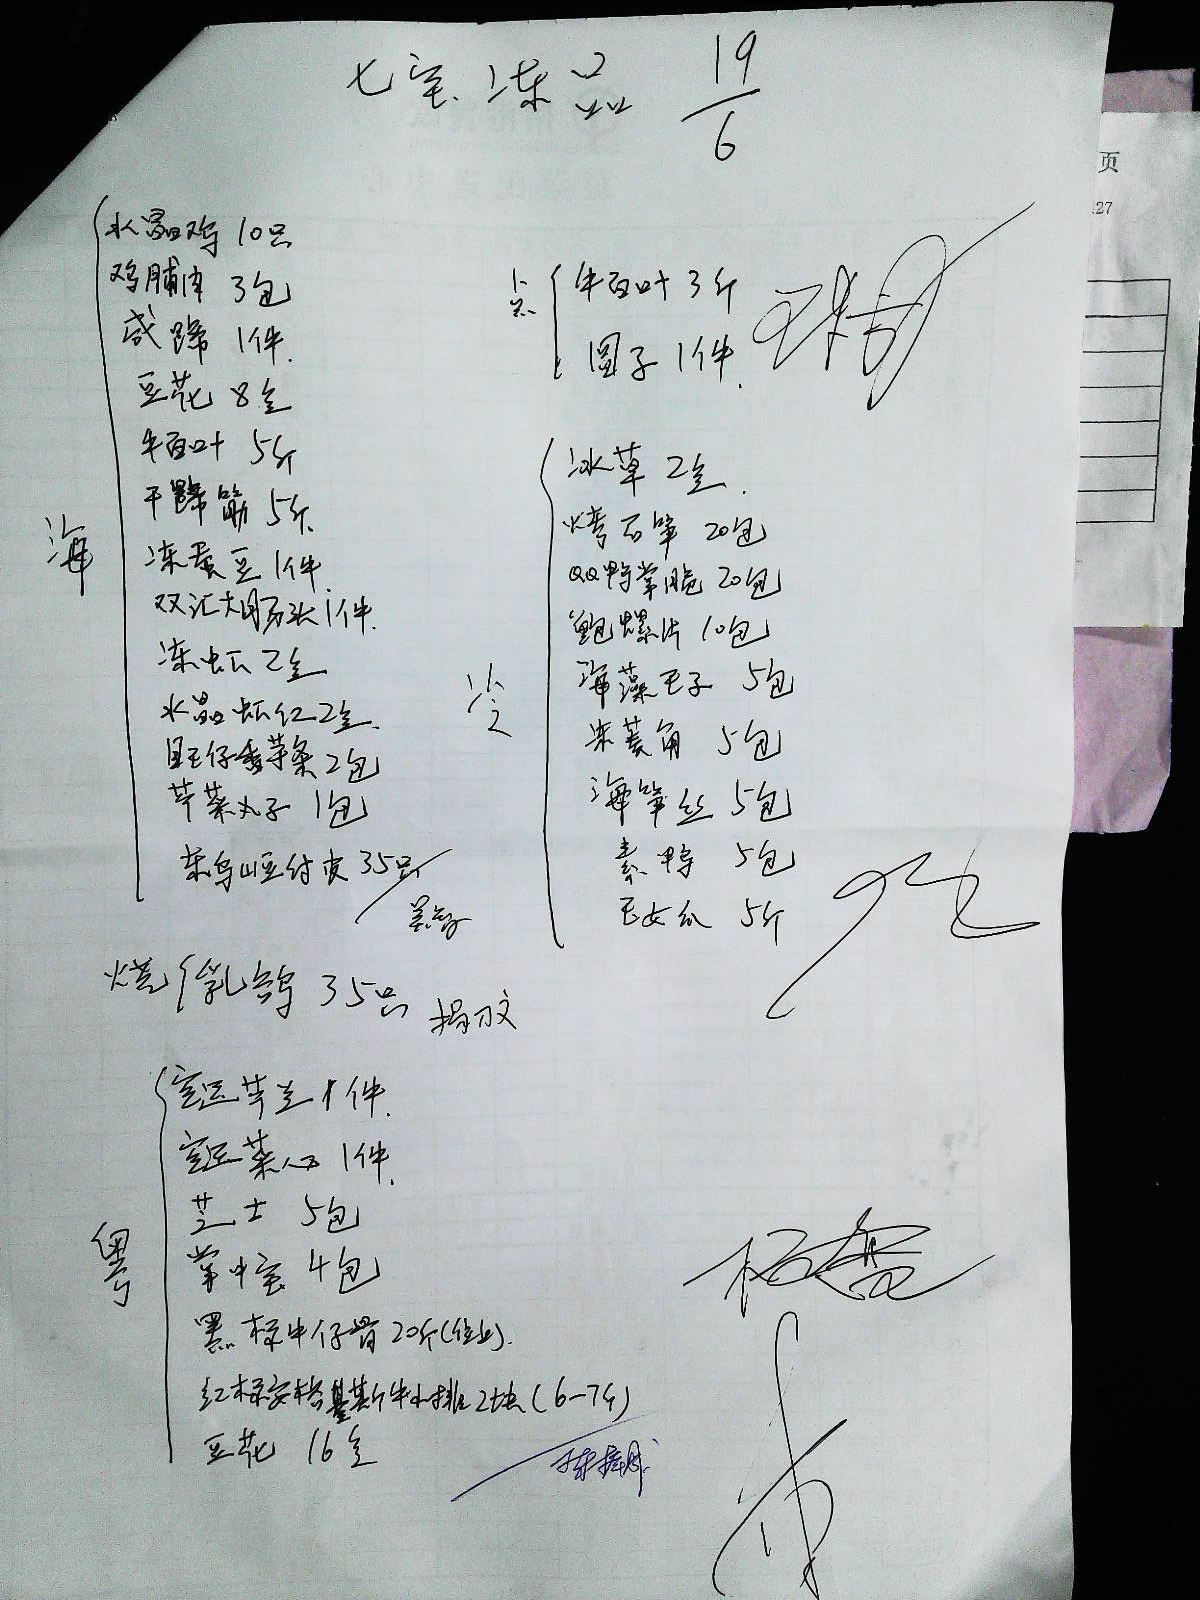 七宝冻品 19/6
海
水晶鸡 10只
鸡脯肉 3包
咸蹄 1件
豆花 8仝
牛百叶 5斤
干蹄筋 5斤
冻蚕豆 1件
双汇大肠头 1件
冻虾 2仝
水晶虾仁 2仝
旺仔香芋条 2包
芹菜丸子 1包
35只
烧 乳鸽 35只
粤
1件
菜心 1件
芝士 5包
掌中宝 4包
黑椒牛仔骨 20斤
红标安格斯牛小排 2块(6-7斤)
豆花 16仝
点
牛百叶 3斤
圆子 1件
冷
冰草 2仝
烤石笋 20包
QQ鸭掌脆 20包
鲍螺片 10包
海藻王子 5包
冻菱角 5包
海笋丝 5包
素鸭 5包
玉女瓜 5斤
页
27